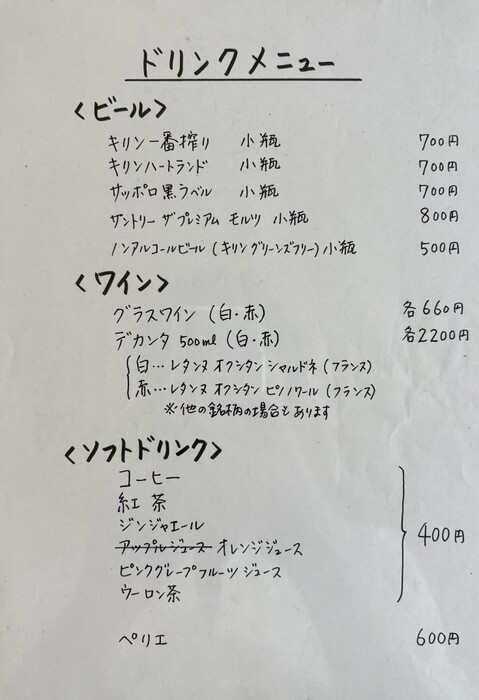 ドリンクメニュー
〈ビール〉
キリン一番搾り 小瓶 700円
キリンハートランド 小瓶 700円
サッポロ黒ラベル 小瓶 700円
サントリー ザプレミアム モルツ 小瓶 800円
ノンアルコールビール (キリン グリーンズフリー) 小瓶 500円
〈ワイン〉
グラスワイン (白・赤) 各660円
デカンタ 500ml (白・赤) 各2200円
白…レタンヌ オクシタン シャルドネ (フランス)
赤…レタンヌ オクシタン ピノノワール (フランス)
※他の銘柄の場合もあります
〈ソフトドリンク〉
コーヒー
紅茶
ジンジャエール
アップルジュース オレンジジュース
ピンクグレープフルーツ ジュース
ウーロン茶
400円
ペリエ 600円